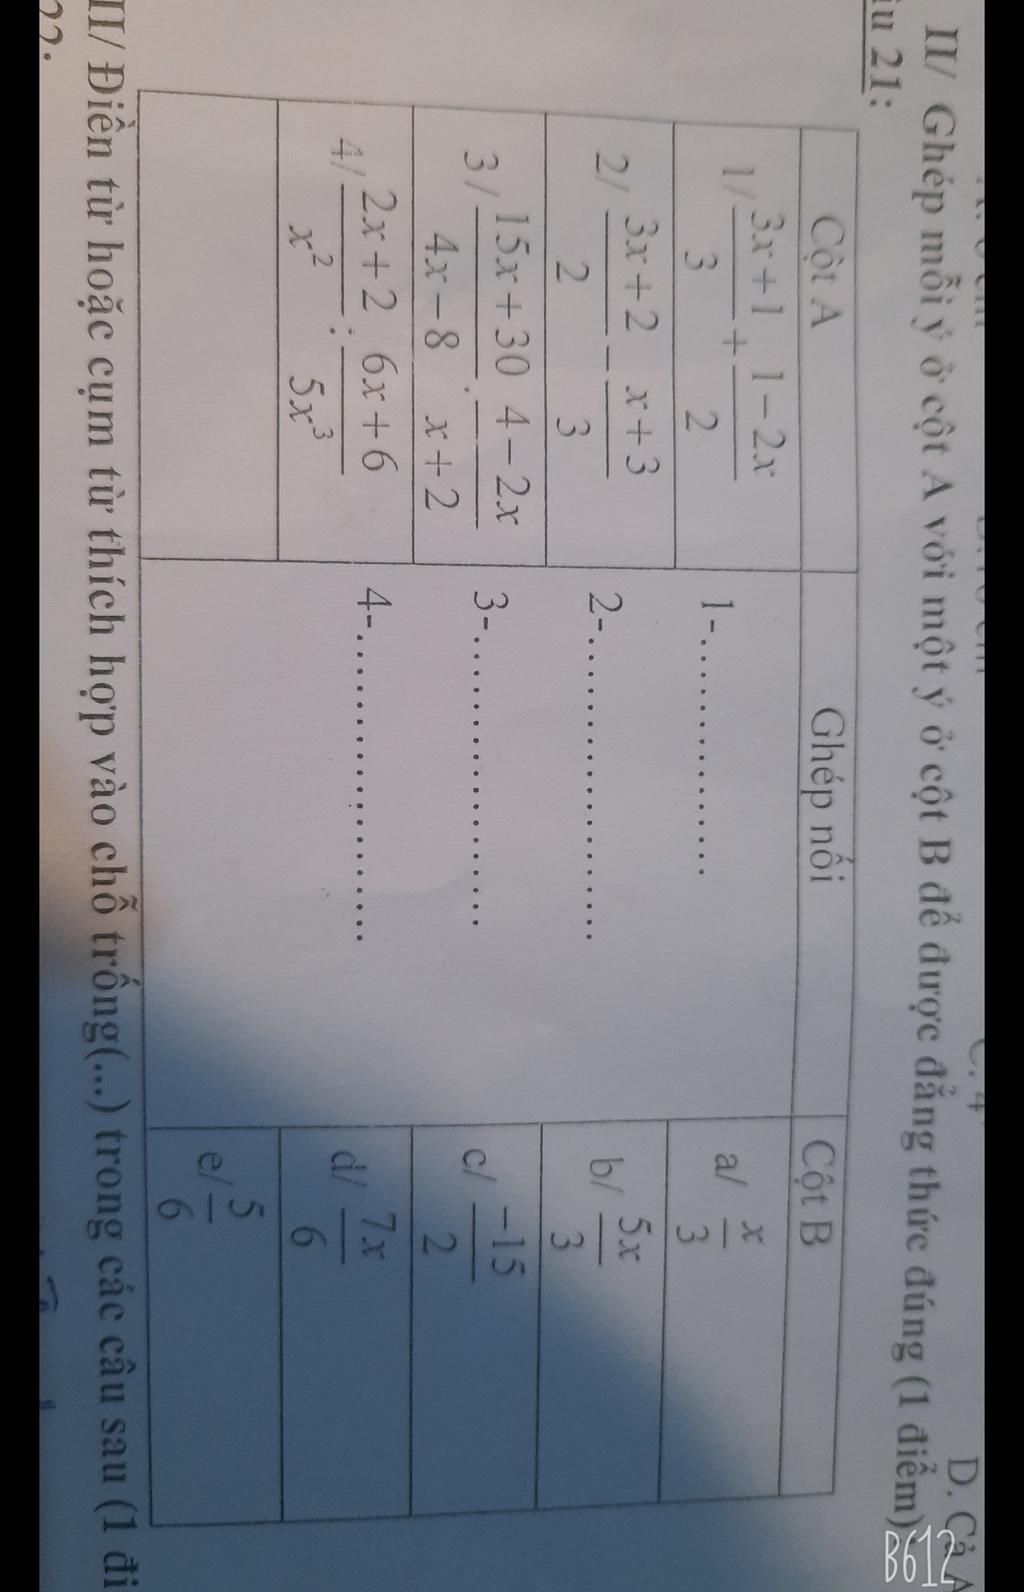 D. Cả A
II/ Ghép mỗi ý ở cột A với một ý ở cột B để được đẳng thức đúng (1 điểm)
21:
Cột A | Ghép nối | Cột B
1/ (3x+1)/3 + (1-2x)/2 | 1-............ | a/ x/3
2/ (3x+2)/2 - (x+3)/3 | 2-.................. | b/ 5x/3
3/ (15x+30)/(4x-8) . (4-2x)/(x+2) | 3-.................. | c/ -15/2
4/ (2x+2)/x² : (6x+6)/5x³ | 4-.................. | d/ 7x/6
e/ 5/6
II/ Điền từ hoặc cụm từ thích hợp vào chỗ trống(...) trong các câu sau (1 đi
B612